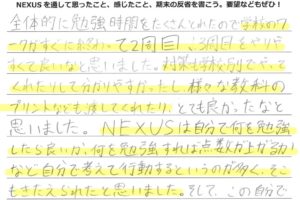 NEXUSを通して思ったこと、感じたこと、期末の反省を書こう。要望などもぜひ！
全体的に勉強時間をたくさんとれたので学校のワ
ークがすぐに終わって2周目、3周目をやりや
すくて良いなと思いました。対策も学校別でやって
くれたりして分かりやすかったし、様々な教科の
プリントなども渡してくれたり、とても良かったなと
思いました。NEXUSは自分で何を勉強
したら良いか、何を勉強すれば点数が上がるか
など自分で考えて行動するというのが多く、そこ
もきたえられたと思いました。そして、この自分で